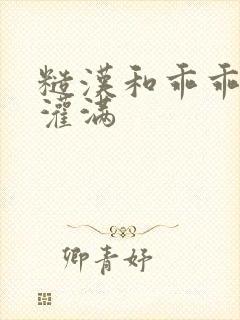 糙漢和乖乖
灌滿
卿青妤